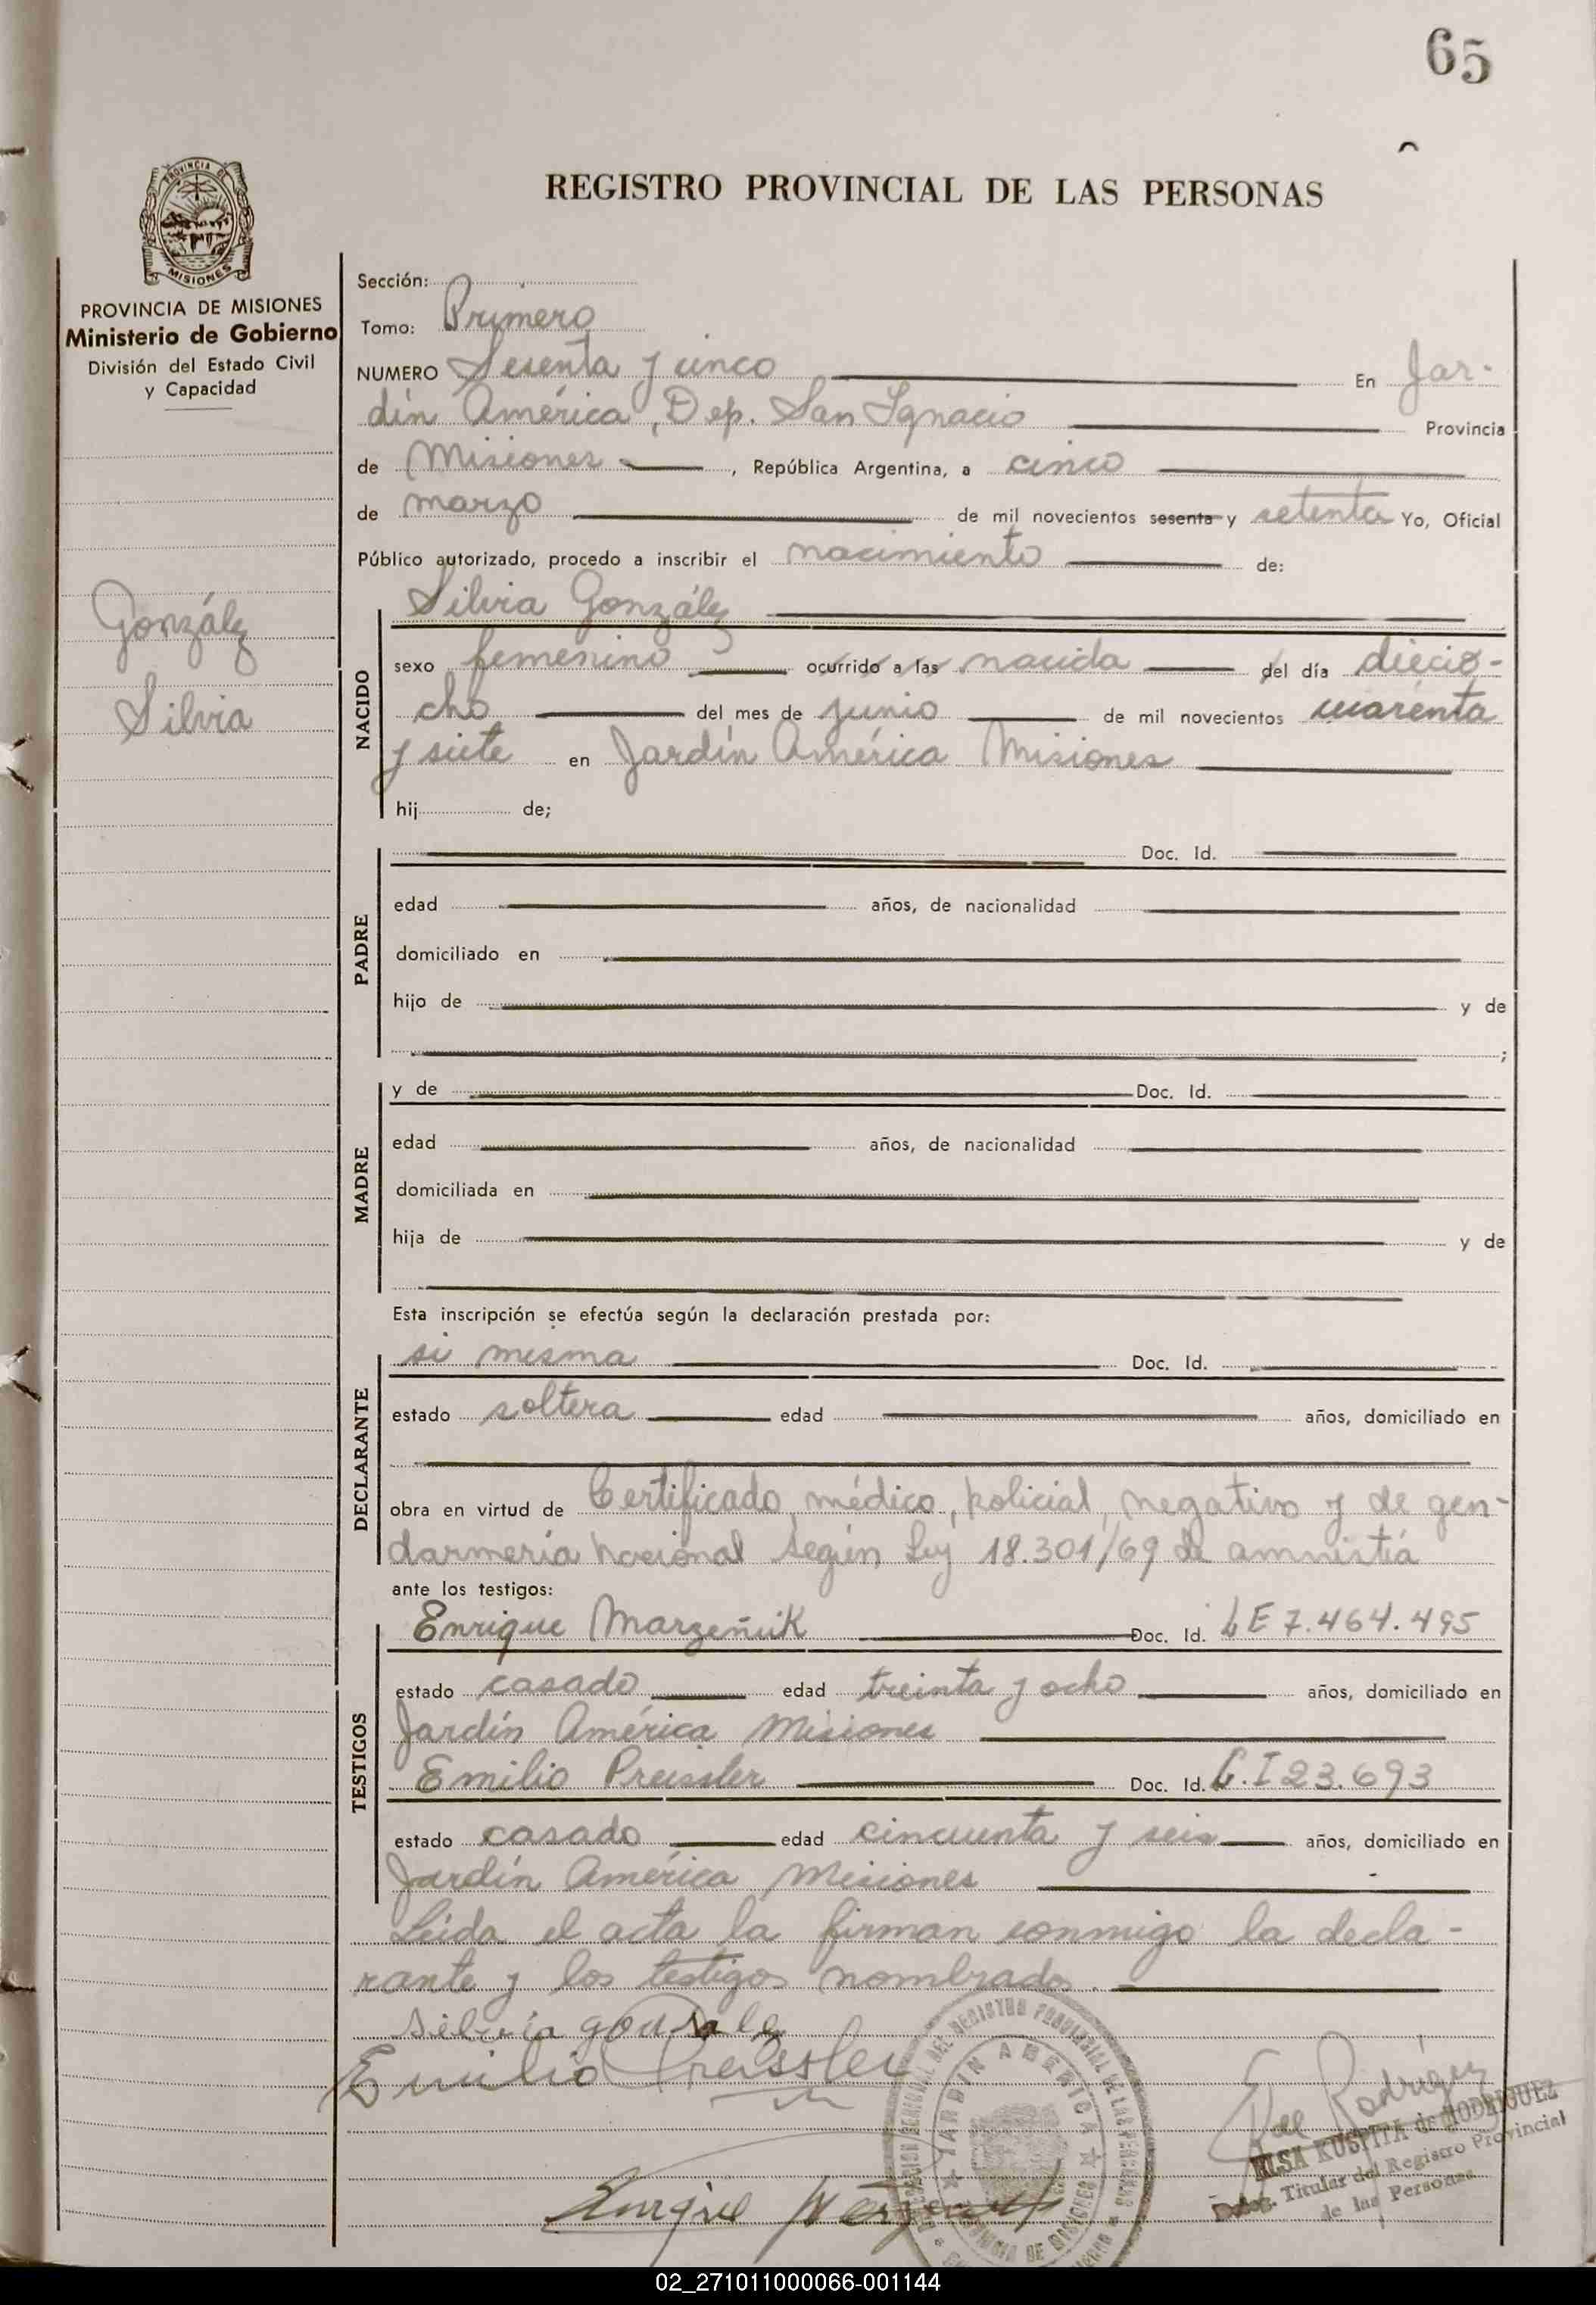 65
REGISTRO PROVINCIAL DE LAS PERSONAS
PROVINCIA DE MISIONES
PROVINCIA DE MISIONES
Ministerio de Gobierno
División del Estado Civil
y Capacidad
González
Silvia
Sección:
Tomo: Primero
NUMERO Sesenta y cinco En Jar-
dín América, Dep. San Ignacio Provincia
de Misiones, República Argentina, a cinco
de marzo de mil novecientos sesenta y setenta Yo, Oficial
Público autorizado, procedo a inscribir el nacimiento de:
Silvia González
NACIDO
sexo femenino ocurrido a las nacida del día diecio-
cho del mes de junio de mil novecientos cuarenta
y siete en Jardín América Misiones
hij de;
PADRE
Doc. Id.
edad años, de nacionalidad
domiciliado en
hijo de y de
;
MADRE
y de Doc. Id.
edad años, de nacionalidad
domiciliada en
hija de y de
Esta inscripción se efectúa según la declaración prestada por:
DECLARANTE
si misma Doc. Id.
estado soltera edad años, domiciliado en
obra en virtud de Certificado médico, policial, negativo y de gen-
darmería nacional según Ley 18.301/69 de amnistía
ante los testigos:
TESTIGOS
Enrique Marzeñuk Doc. Id. LE 7.464.495
estado casado edad treinta y ocho años, domiciliado en
Jardín América Misiones
Emilio Preissler Doc. Id. C.I 23.693
estado casado edad cincuenta y seis años, domiciliado en
Jardín América Misiones
Leída el acta la firman conmigo la decla-
rante y los testigos nombrados.
Silvia gonsalez
Emilio Preissler
JARDIN AMERICA
Rodríguez
ELSA KUSPITA de RODRIGUEZ
Deleg. Titular del Registro Provincial
de las Personas
Enrique
02_271011000066-001144